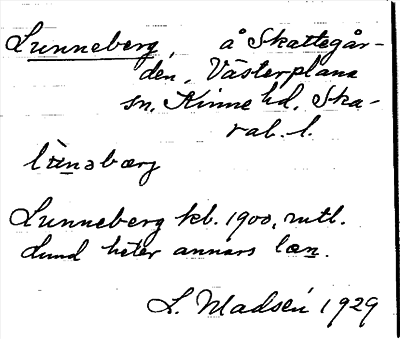 Lunneberg, å Skattegår-
den, Västerplana
sn. Kinne hd. Ska-
rab. l.
lùnəbærg
Lunneberg kb. 1900, mtl.
Lund heter annars læn.
L. Madsén 1929